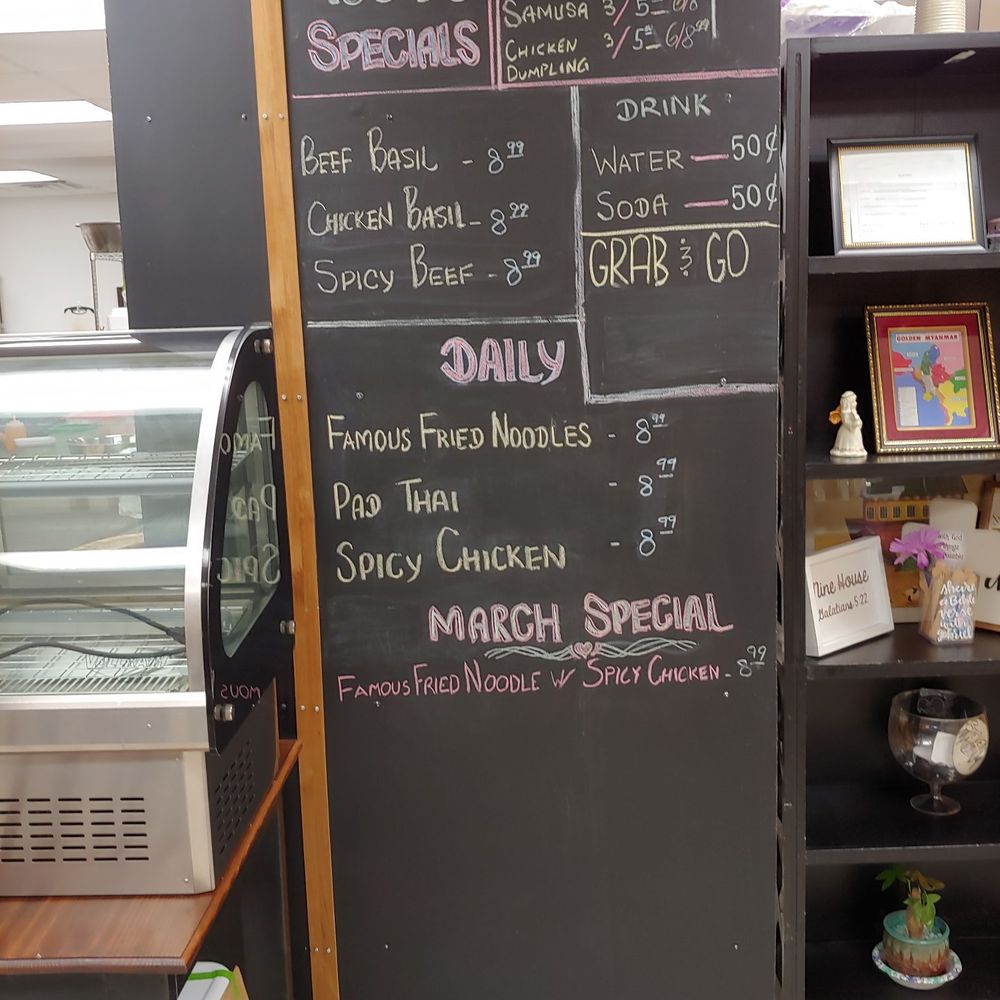 SPECIALS
SAMUSA 3/5
CHICKEN DUMPLING 3/5 6/8.99
BEEF BASIL - 8.99
CHICKEN BASIL - 8.99
SPICY BEEF - 8.99
DRINK
WATER — 50¢
SODA — 50¢
GRAB & GO
DAILY
FAMOUS FRIED NOODLES - 8.99
PAD THAI - 8.99
SPICY CHICKEN - 8.99
MARCH SPECIAL
FAMOUS FRIED NOODLE W/ SPICY CHICKEN - 8.99
GOLDEN MYANMAR
Nine House
Galatians 5:22